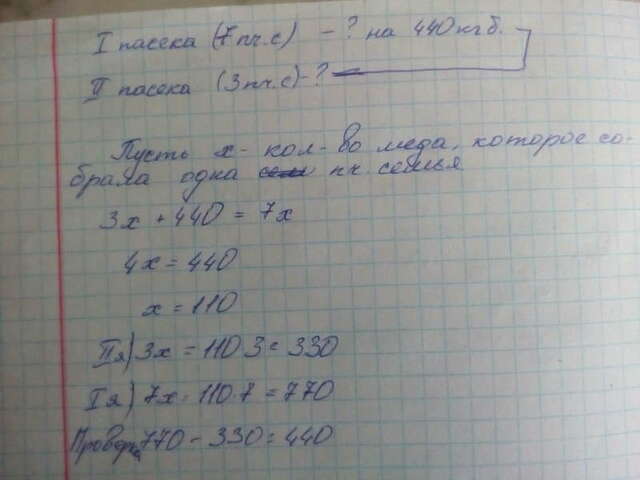 I пасека (7 пч.с) - ? на 440 кг б.
II пасека (3 пч.с) - ?
Пусть х - кол-во меда, которое со-
брала одна пч. семья
3х + 440 = 7х
4х = 440
х = 110
IIя) 3х = 110·3 = 330
Iя) 7х = 110·7 = 770
Проверка 770 - 330 = 440